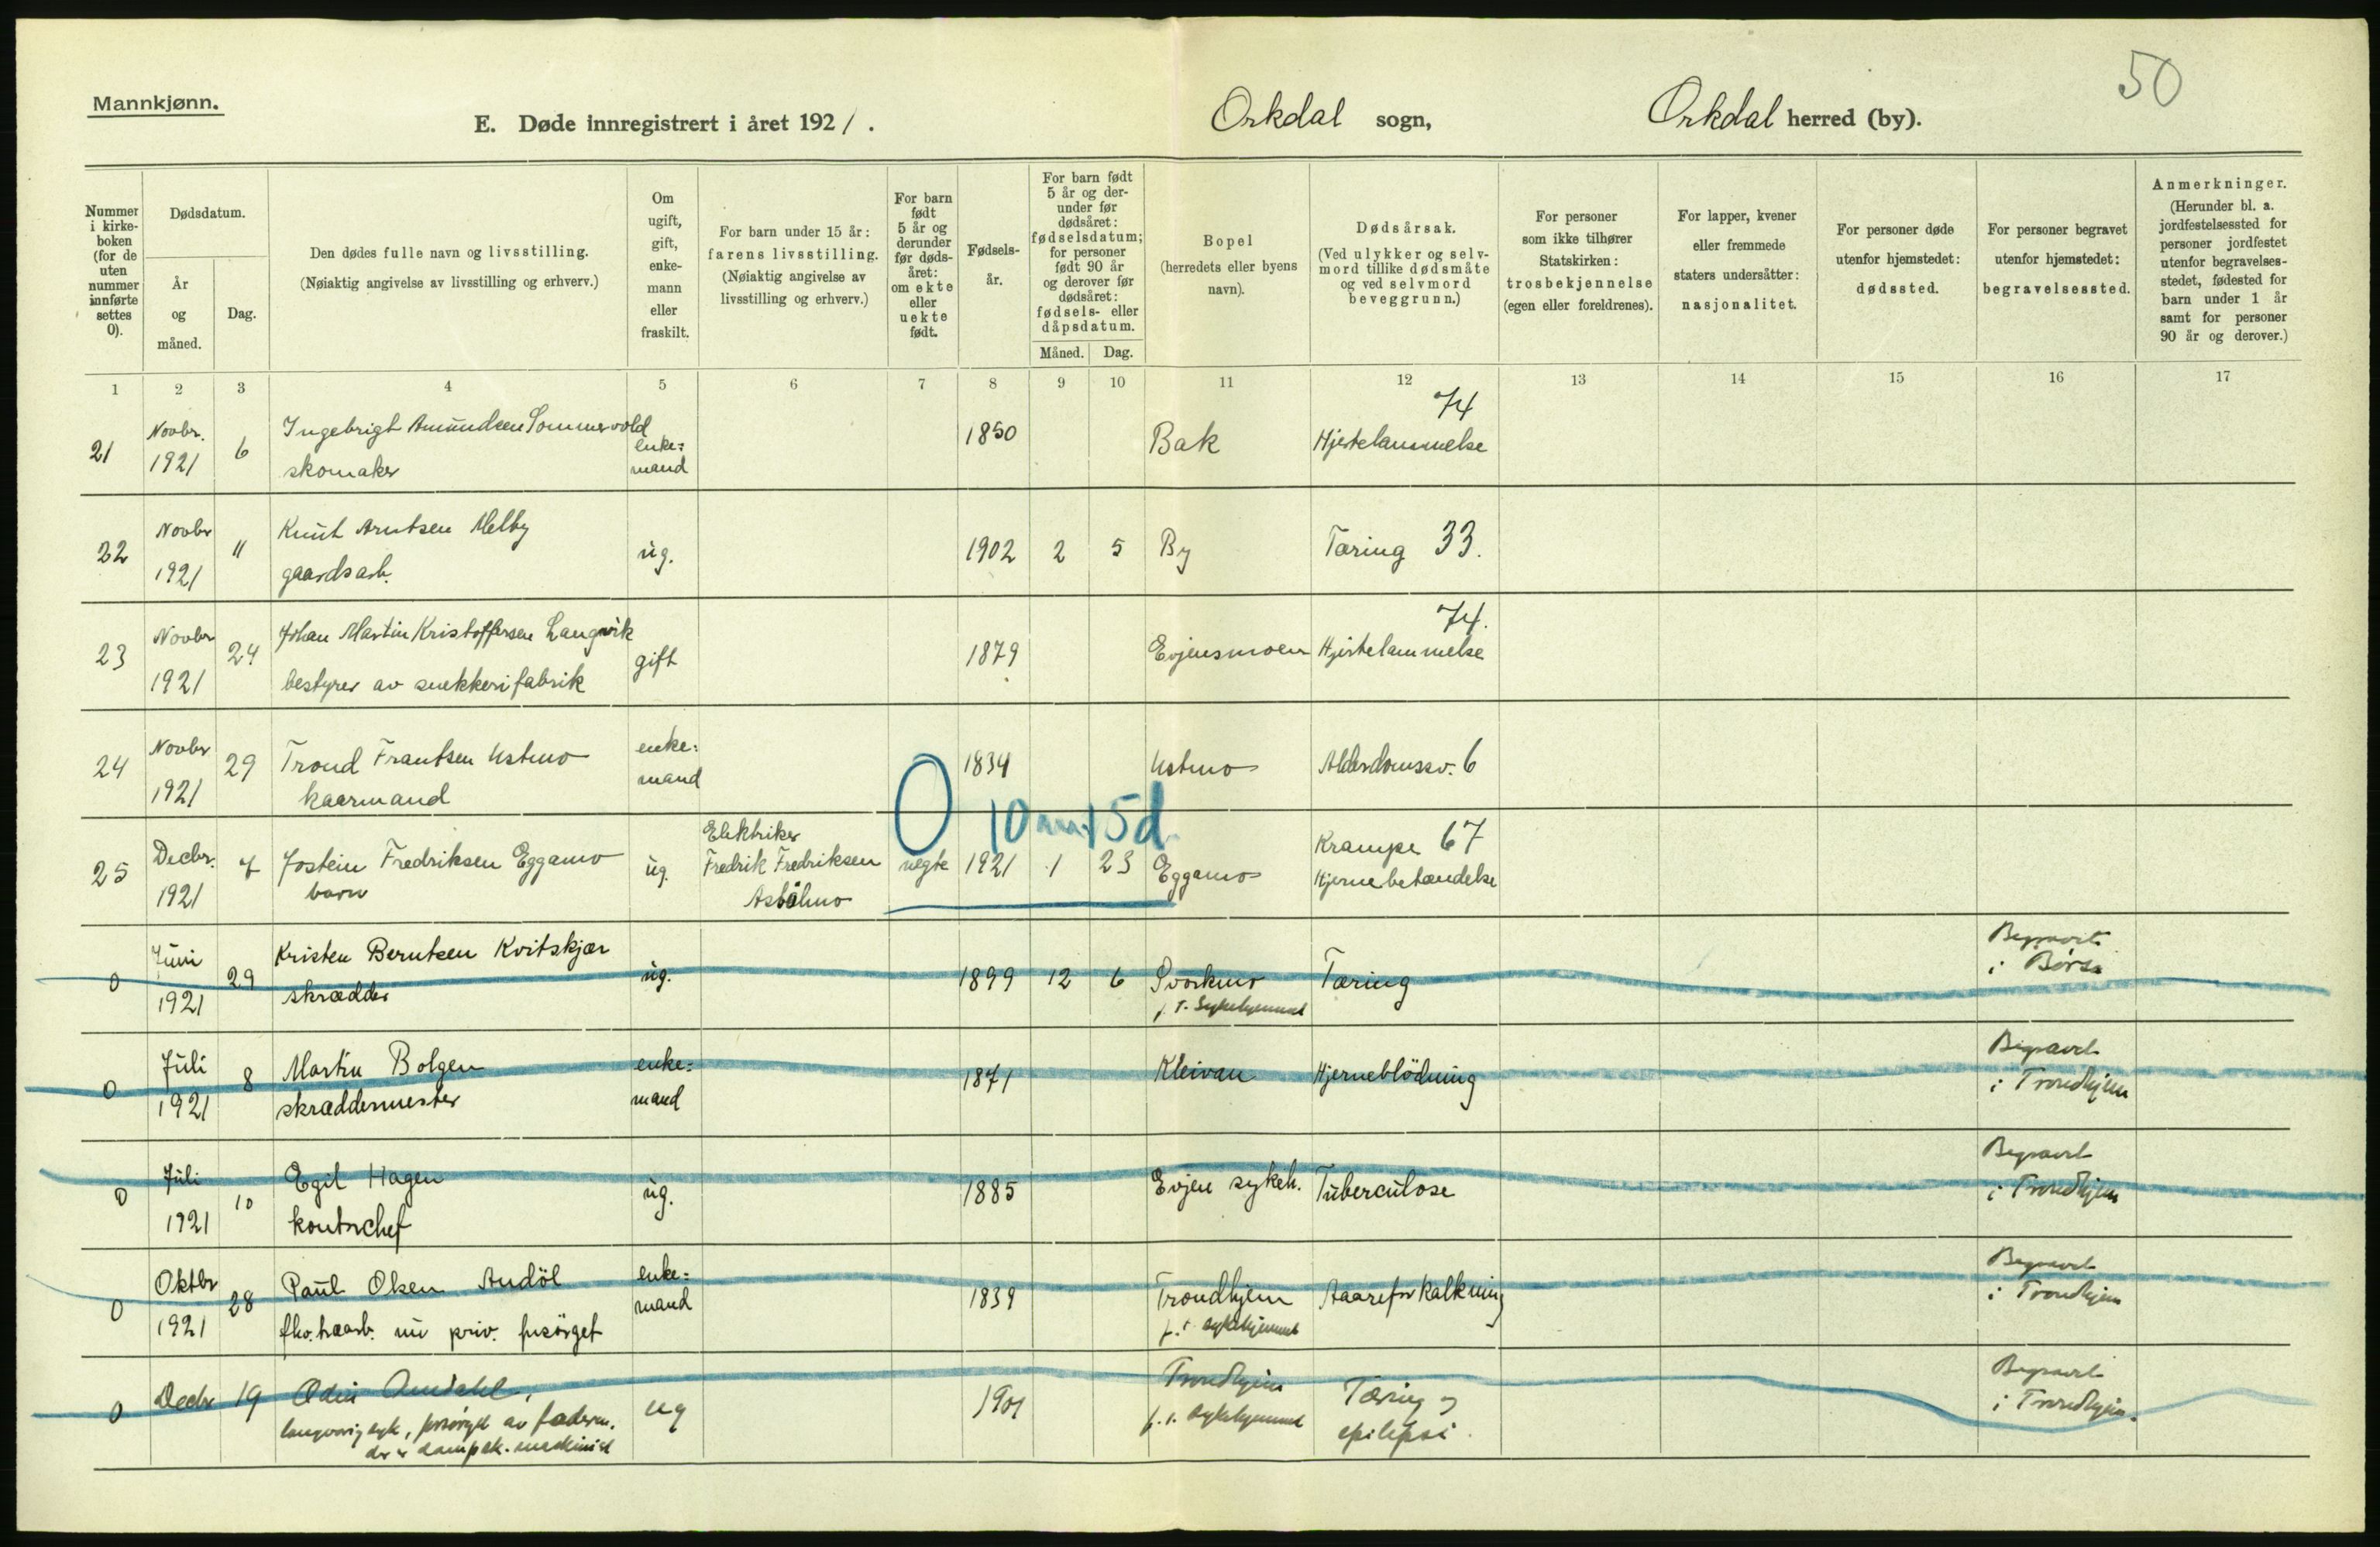 Mannkjønn.
50
E. Døde innregistrert i året 1921.
Orkdal sogn, Orkdal herred (by).
Nummer i kirkeboken (for de uten nummer innførte settes 0).
Dødsdatum.
År og måned.
Dag.
Den dødes fulle navn og livsstilling.
(Nøiaktig angivelse av livsstilling og erhverv.)
Om ugift, gift, enkemann eller fraskilt.
For barn under 15 år: farens livsstilling.
(Nøiaktig angivelse av livsstilling og erhverv.)
For barn født 5 år og derunder før dødsåret: om ekte eller uekte født.
Fødselsår.
For barn født 5 år og derunder før dødsåret: fødselsdatum; for personer født 90 år og derover før dødsåret: fødsels- eller dåpsdatum.
Måned. Dag.
Bopel (herredets eller byens navn).
Dødsårsak.
(Ved ulykker og selvmord tillike dødsmåte og ved selvmord beveggrunn.)
For personer som ikke tilhører Statskirken: trosbekjennelse (egen eller foreldrenes).
For lapper, kvener eller fremmede staters undersåtter: nasjonalitet.
For personer døde utenfor hjemstedet: dødssted.
For personer begravet utenfor hjemstedet: begravelsessted.
Anmerkninger.
(Herunder bl. a. jordfestelsessted for personer jordfestet utenfor begravelsesstedet, fødested for barn under 1 år samt for personer 90 år og derover.)
1 2 3 4 5 6 7 8 9 10 11 12 13 14 15 16 17
21 Novbr. 1921 6 Ingebrigt Amundsen Sommervold skomaker enkemand 1850 Bak Hjertelammelse 74
22 Novbr 1921 11 Knut Arntsen Melby gaardsarb. ug. 1902 2 5 By Tæring 33.
23 Novbr 1921 24 Johan Martin Kristoffersen Langvik bestyrer av snekkerifabrik gift 1879 Evjensmoen Hjertelammelse 74.
24 Novbr 1921 29 Trond Frantsen Ustmo kaarmand enke=mand 1834 Ustmo Alderdomssv. 6
0 10 m 15 d.
25 Decbr. 1921 7 Jostein Fredriksen Eggamo barn ug. Elektriker Fredrik Fredriksen Asbölmo uegte 1921 1 23 Eggamo Krampe 67 Hjernebetændelse
0 Juni 1921 29 Kristen Berntsen Kvitskjær skrædder ug. 1899 12 6 Svorkmo p. t. Sykehjemmet Tæring Begravet i Börsa
0 Juli 1921 8 Martin Bolgen skræddermester enke=mand 1871 Kleivan Hjerneblödning Begravet i Trondhjem
0 Juli 1921 10 Egil Hagen kontorchef ug. 1885 Evjen sykeh. Tuberculose Begravet i Trondhjem
0 Oktbr 1921 28 Paul Olsen Andöl fhv. havarb. nu priv. forsörget enke=mand 1839 Trondhjem p. t. sykehjemmet Aareforkalkning Begravet i Trondhjem
0 Decbr 19 Odin Amdahl, langvarig syk, forsörget av faderen, der er dampsk. maskinist ug 1901 Trondhjem p. t. sykehjemmet Tæring og epilepsi. Begravet i Trondhjem.